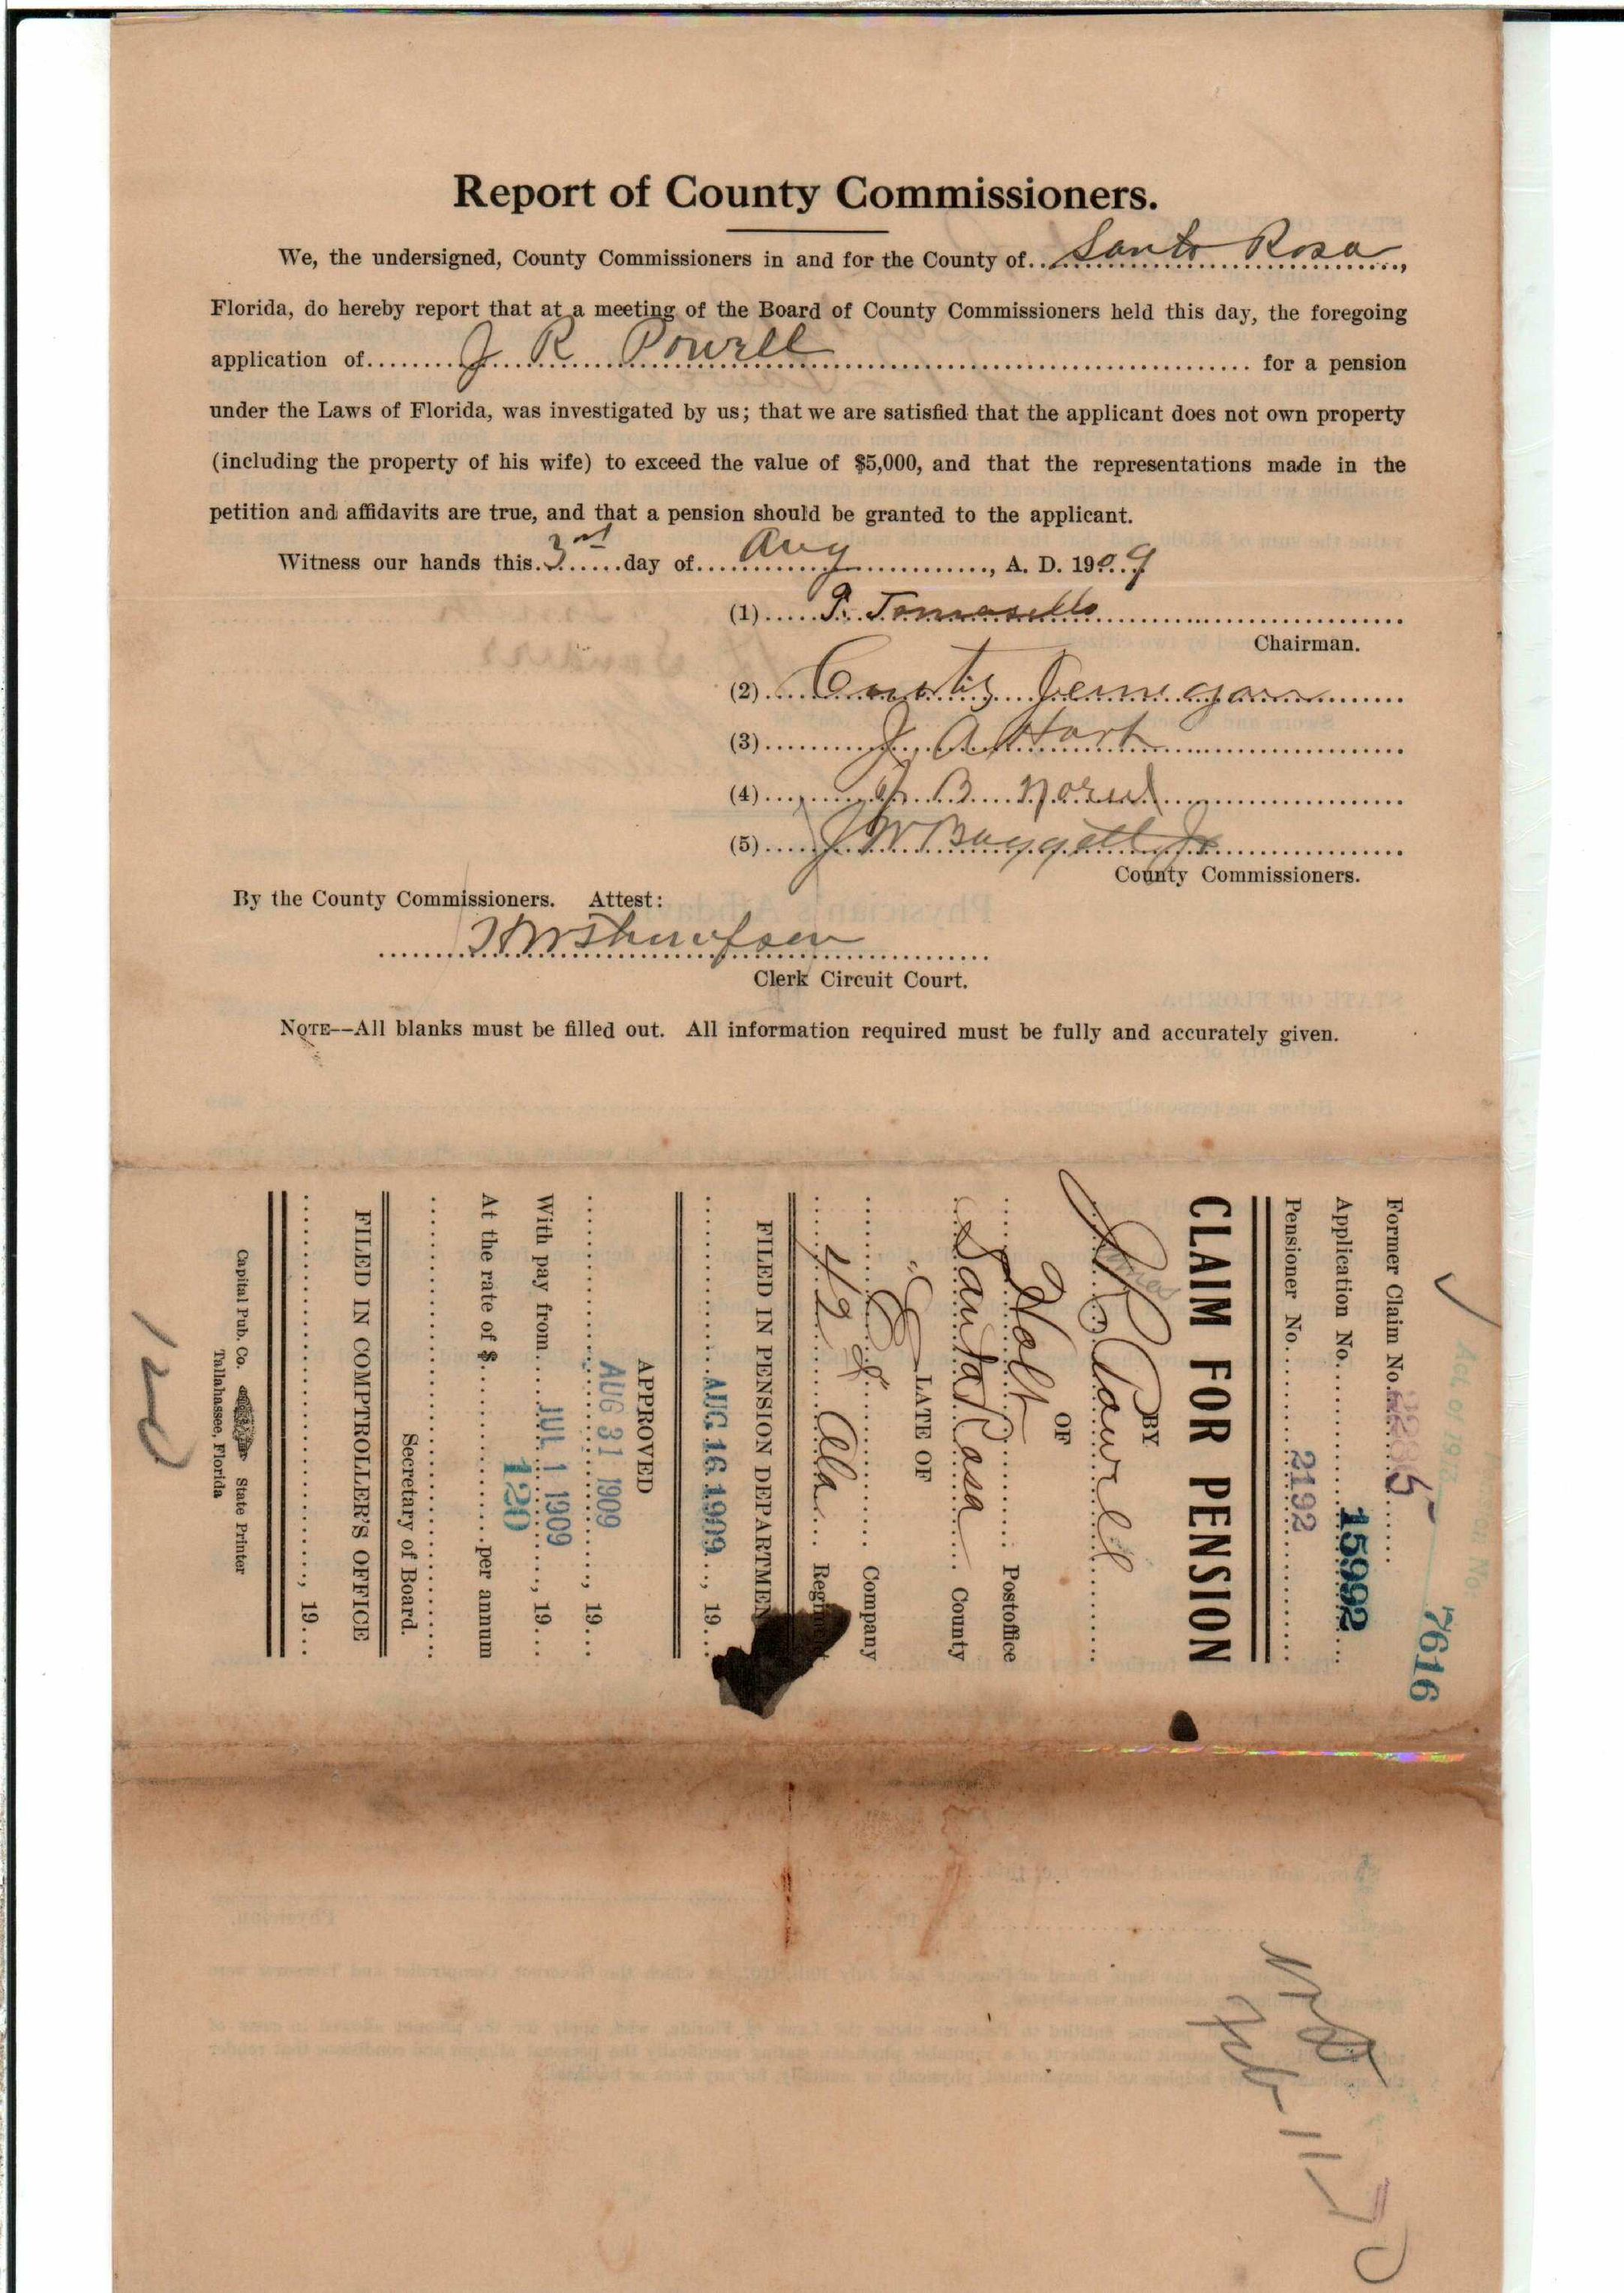 Report of County Commissioners.
We, the undersigned, County Commissioners in and for the County of Santa Rosa,
Florida, do hereby report that at a meeting of the Board of County Commissioners held this day, the foregoing
application of J R Powell for a pension
under the Laws of Florida, was investigated by us; that we are satisfied that the applicant does not own property
(including the property of his wife) to exceed the value of $5,000, and that the representations made in the
petition and affidavits are true, and that a pension should be granted to the applicant.
Witness our hands this 3rd day of Aug, A. D. 1909
(1) P. Tomasello
Chairman.
(2) Curtis Jernigan
(3) J. A. Hart
(4) B.
(5) J W Baggett Jr
County Commissioners.
By the County Commissioners. Attest:
Clerk Circuit Court.
NOTE--All blanks must be filled out. All information required must be fully and accurately given.
Act of 1913
7616
Former Claim No. 5
Application No. 15992
Pensioner No. 2192
CLAIM FOR PENSION
BY
J R Powell
James
OF
Holt Postoffice
Santa Rosa County
LATE OF
"E" Company
42 Ala Regiment
FILED IN PENSION DEPARTMENT
AUG 16 1909, 19
APPROVED
AUG 31 1909, 19
With pay from JUL 1 1909, 19
At the rate of $ 120 per annum
Secretary of Board.
FILED IN COMPTROLLER'S OFFICE
, 19
Capital Pub. Co. State Printer
Tallahassee, Florida